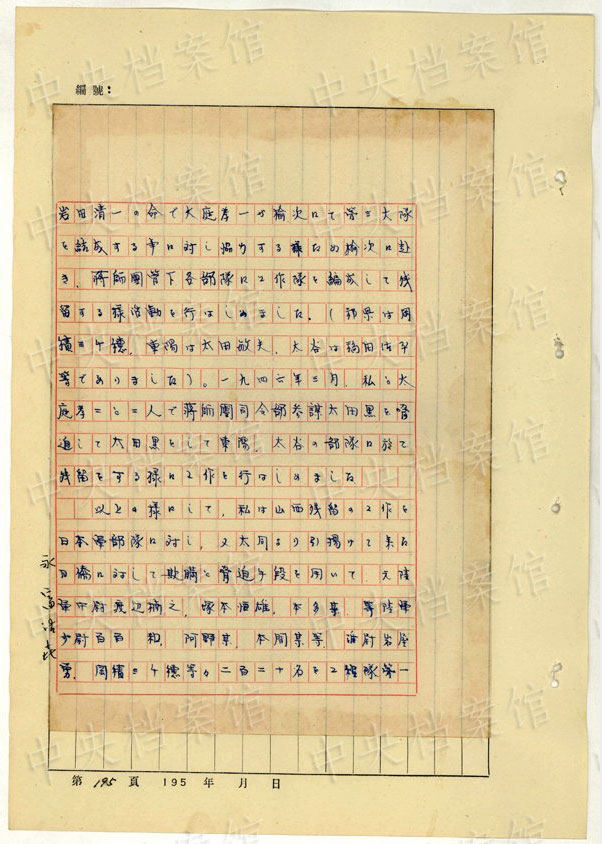 編號：
岩田清一の命で大庭孝一が榆次にて第三大隊
を結成する事に対し協力する様ため榆次に赴
き、蒋師團管下各部隊に工作隊を編成して残
留する様活動を行はしめました。（部県は岡
三千徳、東陽は太田敏夫、太谷は稲田
等でありました）。一九四六年三月、私と大
庭孝一と二人で蒋師團司令部参謀太田黒を脅
迫して太田黒をして東陽、太谷の部隊に於て
残留をする様に工作を行はしめました
以上の様にして、私は山西残留の工作を
日本軍部隊に対し、又大同より引揚げて来た
日僑に対して欺瞞と脅迫手段を用いて、元陸
軍中尉渡辺 之、塚本恒雄、本多某、等陸軍
少尉百百 和、阿野某、本間某等、海尉岩屋
勇、岡 三千徳等々二百二十名を工程隊第一
永富浩喜
第195頁 195 年 月 日
中央档案馆